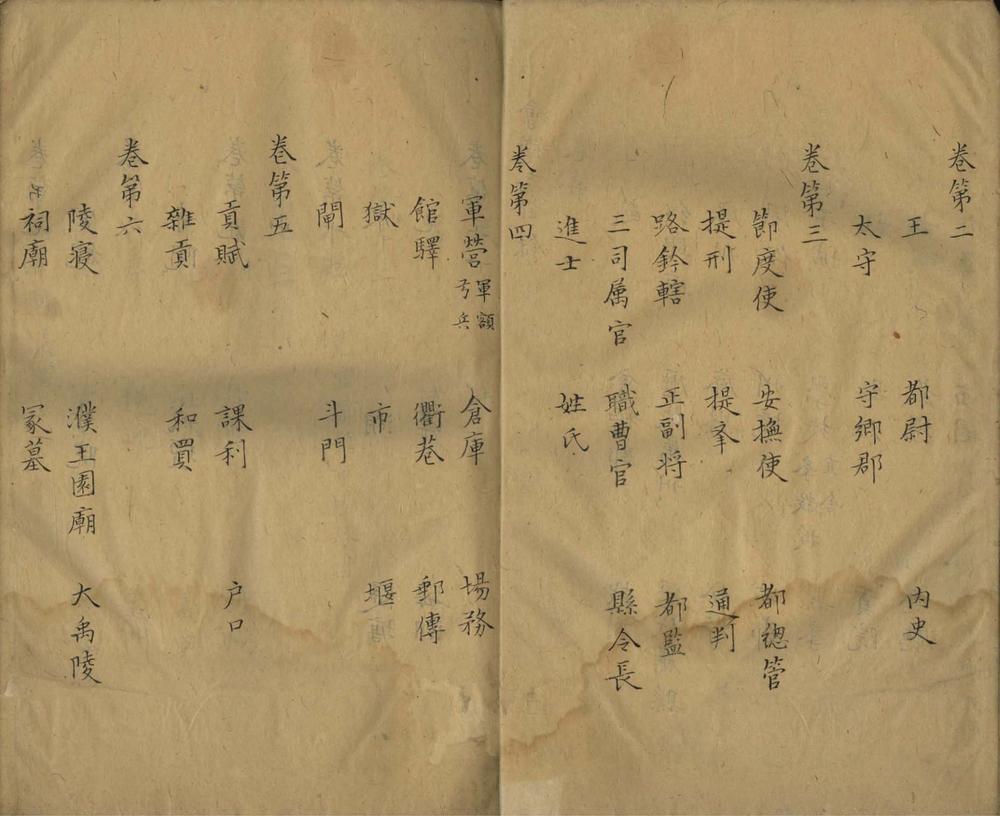 卷第二
王 都尉 内史
太守 守鄉郡
卷第三
節度使 安撫使 都總管
提刑 提舉 通判
路鈐轄 正副将 都監
三司属官 職曹官 縣令長
進士 姓氏
卷第四
軍營 軍額 弓兵 倉庫 場務
館驛 衢巷 郵傳
獄 市 堰
閘 斗門
卷第五
貢賦 課利 户口
雜貢 和買
卷第六
陵寝 濮王園廟 大禹陵
祠廟 冢墓